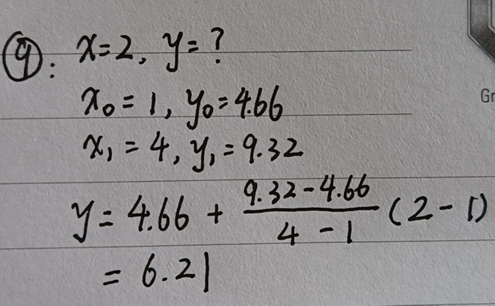 ⑨: x=2, y=?
x₀=1, y₀=4.66
x₁=4, y₁=9.32
y= 4.66 + \frac{9.32-4.66}{4-1} (2-1)
= 6.21
Gr